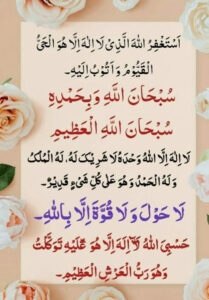 اَسْتَغْفِرُ اللهَ الَّذِىْ لَا اِلٰهَ اِلَّا هُوَ الْحَىُّ
الْقَيُّوْمُ وَ اَتُوْبُ اِلَيْهِ۔
سُبْحَانَ اللَّهِ وَبِحَمْدِهِ
سُبْحَانَ اللَّهِ الْعَظِيْمِ
لَا اِلٰهَ اِلَّا اللهُ وَحْدَهٗ لَا شَرِيْكَ لَهٗ، لَهُ الْمُلْكُ
وَ لَهُ الْحَمْدُ وَهُوَ عَلٰى كُلِّ شَىْءٍ قَدِيْرٌ۔
لَا حَوْلَ وَلَا قُوَّةَ اِلَّا بِاللهِ۔
حَسْبِىَ اللهُ لَآ اِلٰهَ اِلَّا هُوَ عَلَيْهِ تَوَكَّلْتُ
وَهُوَ رَبُّ الْعَرْشِ الْعَظِيْمِ۔